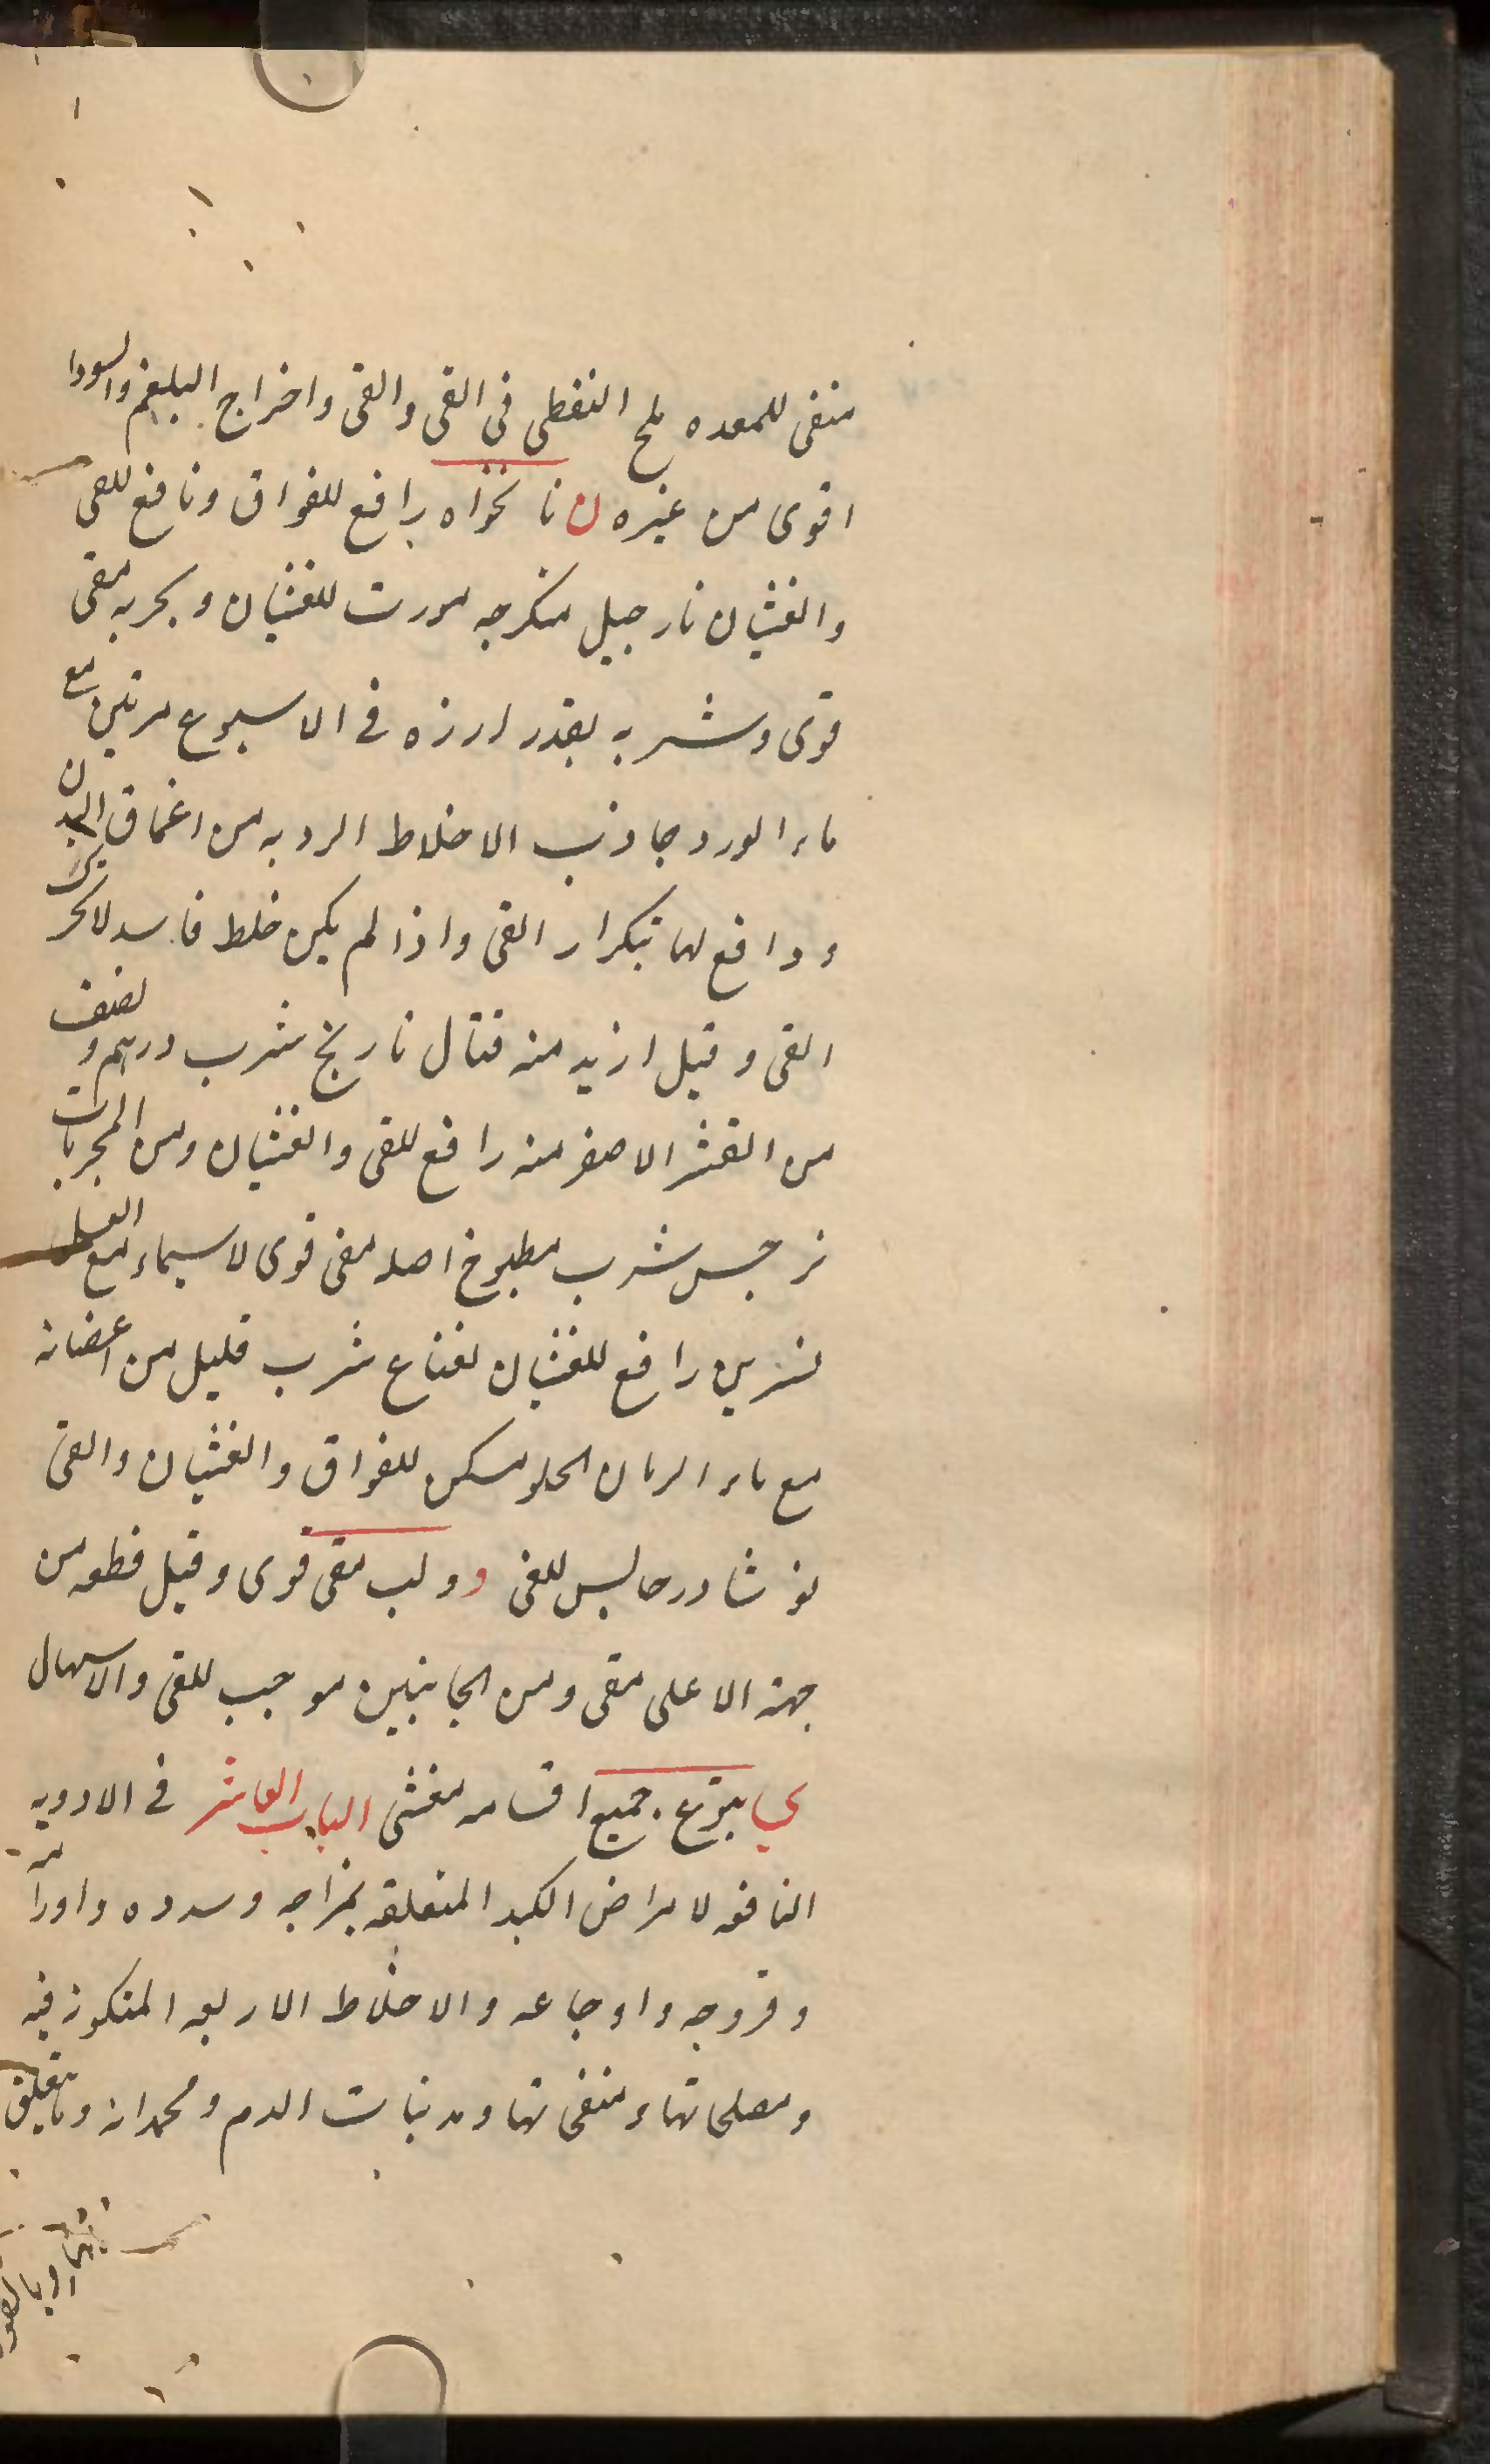 منقى للمعده ملح النفطى فى القى والقى واخراج البلغم والسودا
اقوى من غيره ن نانخواه رافع للفواق ونافع للقى
والغثيان نارجيل متكرجه مورث للغثيان وبحريه مقى
قوى وشربه بقدر ارزه فى الاسبوع مرتين مع
ماء الورد جاذب الاخلاط الرديه من اعماق البدن
ودافع لها بتكرار القى واذا لم يكن خلط فاسد لا
القى وقيل ازيد منه قتال نارنج شرب درهم ونصف
من القشر الاصفر منه رافع للقى والغثيان ومن المجربات
نرجس شرب مطبوخ اصله مقى قوى لاسيماء مع العسل
نسرين رافع للغثيان نعناع شرب قليل من اغصانه
مع ماء الرمان الحلو مسكن للفواق والغثيان والقى
نوشادر حابس للقى و ولب مقى قوى وقيل قطعه من
جهة الاعلى مقى ومن الجانبين موجب للقى والاسهال
ى يتوع جميع اقسامه مغثى الباب العاشر فى الادويه
النافعه لامراض الكبد المتعلقه بمزاجه وسدده واورامه
وقروحه واوجاعه والاخلاط الاربعه المتكونه فيه
ومصلحاتها ومنقى تها ومد نبات الدم ومحمداته وما يتعلق